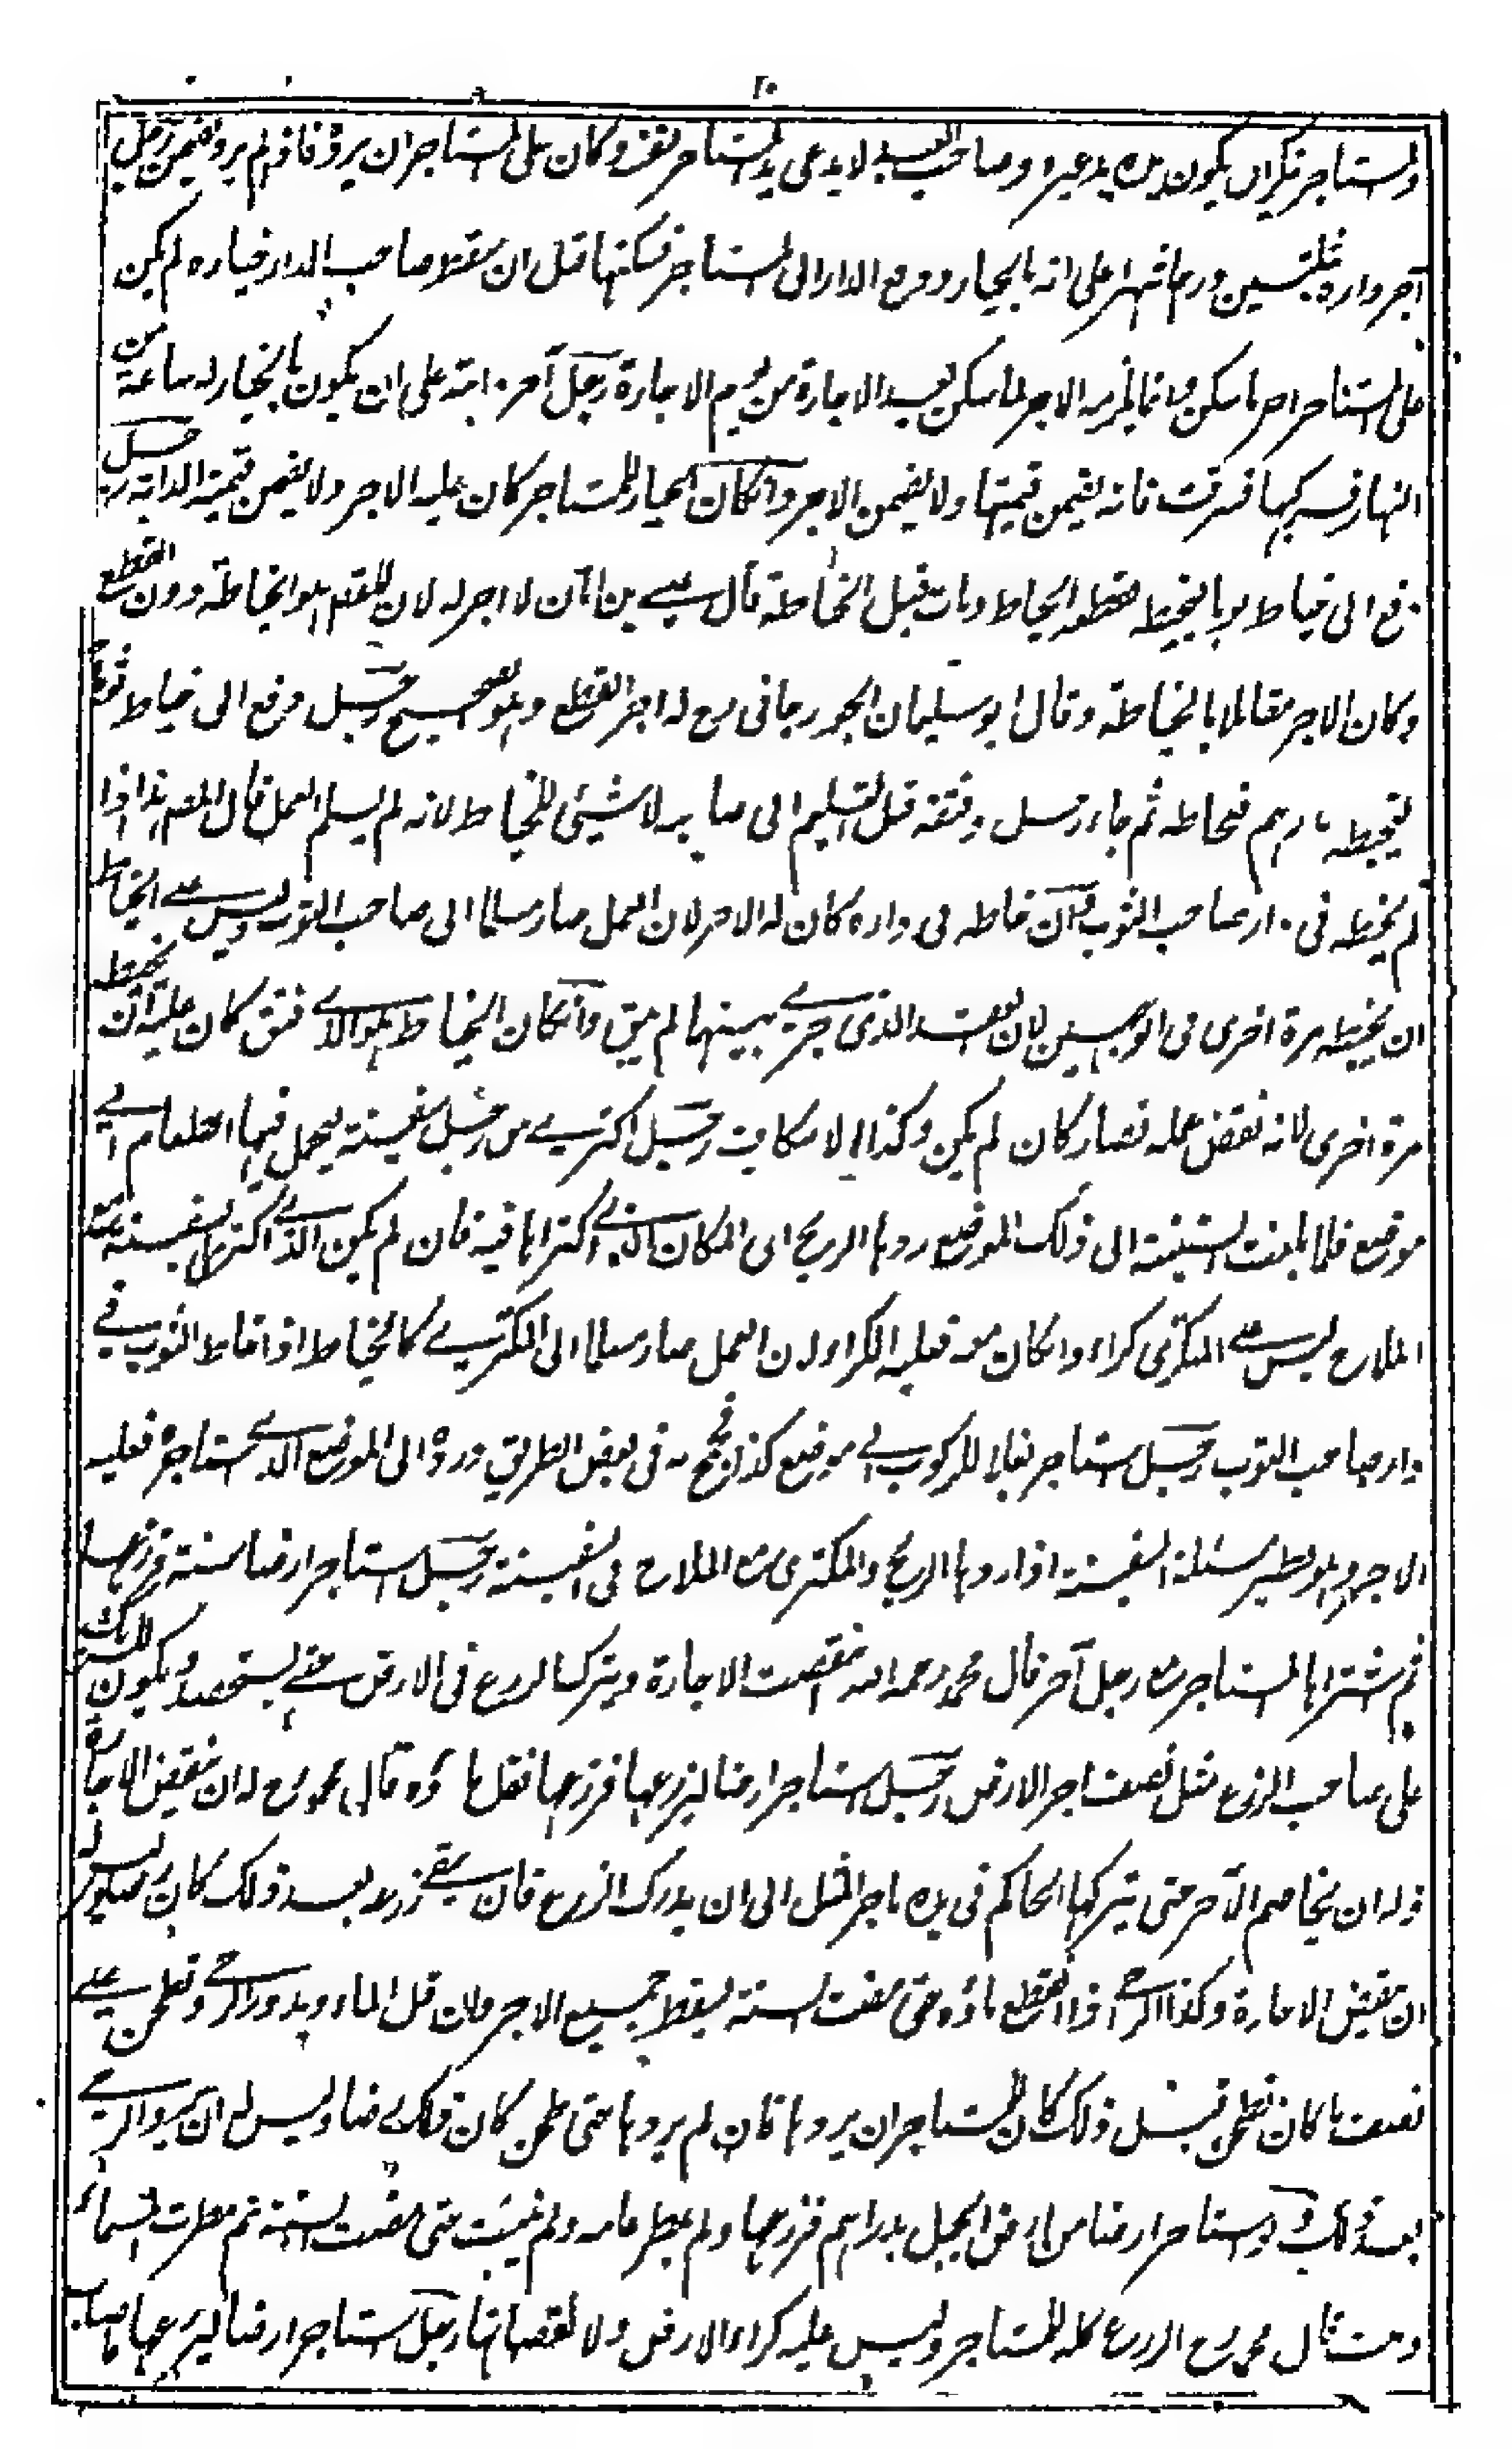 ٢٠
والمستاجر ينكر ان يكون يده يد غيره وصاحب العبد لا يدعى يد المستاجر وكان على المستاجر ان يرده فاذا لم يرده يضمن رجل
آجر داره ثلثين درهما شهرا على انه بالخيار ودفع الدار الى المستاجر فسكنها قبل ان صاحب الدار خياره لم يكن
على المستاجر اجر ما سكن وانما يلزمه الاجر لما سكن بعد الاجازة من يوم الاجازة رجل آجر دابته على ان يكون بالخيار له ساعة من
النهار فركبها فسرقت فانه يضمن قيمتها ولا يضمن الاجر وان كان الخيار للمستاجر كان عليه الاجر ولا يضمن قيمة الدابة رجل
دفع الى خياط ثوبا ليخيطه فقطعه الخياط ومات قبل الخياطة قال عيسى بن ابان لا اجر له لان المقصود هو الخياطة دون القطع
وكان الاجر مقابلا بالخياطة وقال ابو سليمان الجورجانى رح له اجر القطع وهو الصحيح رجل دفع الى خياط ثوبا
ليخيطه بدرهم فخاطه ثم جاء رجل وفتقه قبل التسليم الى صاحبه لا شيئ للخياط لانه لم يسلم العمل قال المصنف هذا اذا
لم يخيطه فى دار صاحب الثوب فان خاطه فى داره كان له الاجر لان العمل صار مسلما الى صاحب الثوب وليس على الخياط
ان يخيطه مرة اخرى فى الوجهين لان العقد الذى جرى بينهما لم يبق وان كان الخياط هو الذى فتق كان عليه ان يخيطه
مرة اخرى لانه نقض عمله فصار كان لم يكن وكذا الاسكاف رجل اكترى من رجل سفينة ليحمل فيها الطعام الى
موضع فلما بلغت السفينة الى ذلك الموضع ردها الريح الى المكان الذى اكتراها فيه فان لم يكن الذى اكترى السفينة مع
الملاح ليس على المكترى كراء وان كان معه فعليه الكراء لان العمل صار مسلما الى المكترى كالخياط اذا خاط الثوب فى
دار صاحب الثوب رجل استاجر بغلا للركوب الى موضع كذا فجمح به فى بعض الطريق ورده الى الموضع الذى استاجره فعليه
الاجر وهو نظير مسئلة السفينة اذا ردها الريح والمكترى مع الملاح فى السفينة رجل استاجر ارضا سنة فزرعها
ثم اشتراها المستاجر مع رجل آخر قال محمد رحمه الله تنقضت الاجارة ويترك الزرع فى الارض حتى يستحصد ويكون للشريك
على صاحب الزرع مثل نصف اجر الارض رجل استاجر ارضا ليزرعها فزرعها فقل ماؤه قال محمد رح له ان ينقض الاجارة
وله ان يخاصم الآجر حتى يتركها الحاكم فى يده باجر المثل الى ان يدرك الزرع فان سقى زرعه بعد ذلك كان ليس له
ان ينقض الاجارة وكذا الرحى اذا انقطع ماؤه حتى مضت السنة يسقط جميع الاجر وان قل الماء ويدور الرحى وتطحن على
نصف ما كان تطحن قبل ذلك كان للمستاجر ان يردها فان لم يردها حتى طحن كان ذلك رضا وليس له ان يرد الرحى
بعد ذلك رجل استاجر ارضا من ارض الجبل بدراهم فزرعها ولم يمطر عامه ولم ينبت حتى مضت السنة ثم مطرت السماء
ونبت قال محمد رح الزرع كله للمستاجر وليس عليه كراء الارض ولا نقصانها رجل استاجر ارضا ليزرعها فاصاب